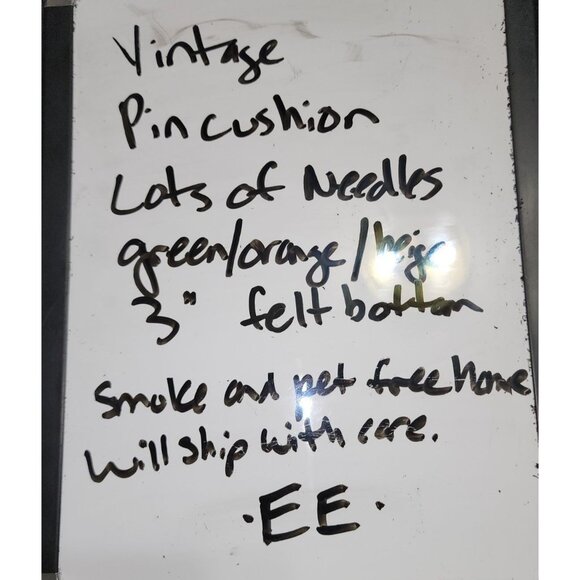 Vintage
Pincushion
Lots of Needles
green/orange/beige
3" felt bottom
Smoke and pet free Home
Will ship with care.
·EE·